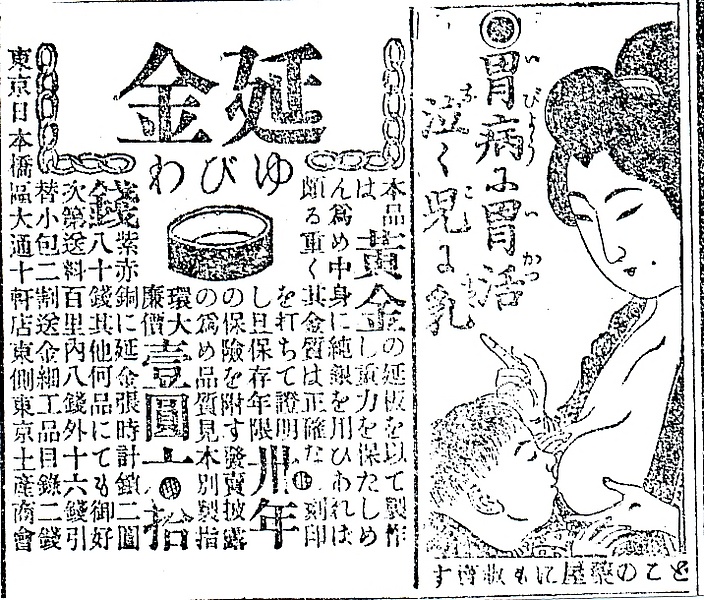 胃病に胃活
いびょう い かつ
泣く児に乳
な こ
どこの藥屋にも販賣す
延金
ゆびわ
本品は黄金の延板を以て製作
し重力を保たしめ
ん爲め中身に純銀を用ひあれば
頗る重く其金質は正確な刻印
を打ちて證明
し且保存年限卅年
の保險を附す發賣披露
の爲め品質見本別製指
環大
廉價壹圓六拾
錢紫赤銅に延金張時計鎖二圓
八十錢其他何品にても御好
次第送料百里内八錢外十六錢引
替小包二割送金細工品目錄二錢
東京日本橋區大通十軒店東側東京土産商會